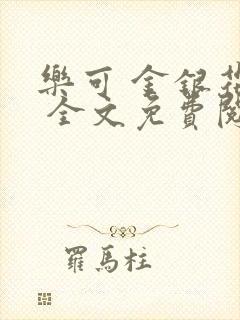 樂可 金銀花
全文免費閱
羅馬柱